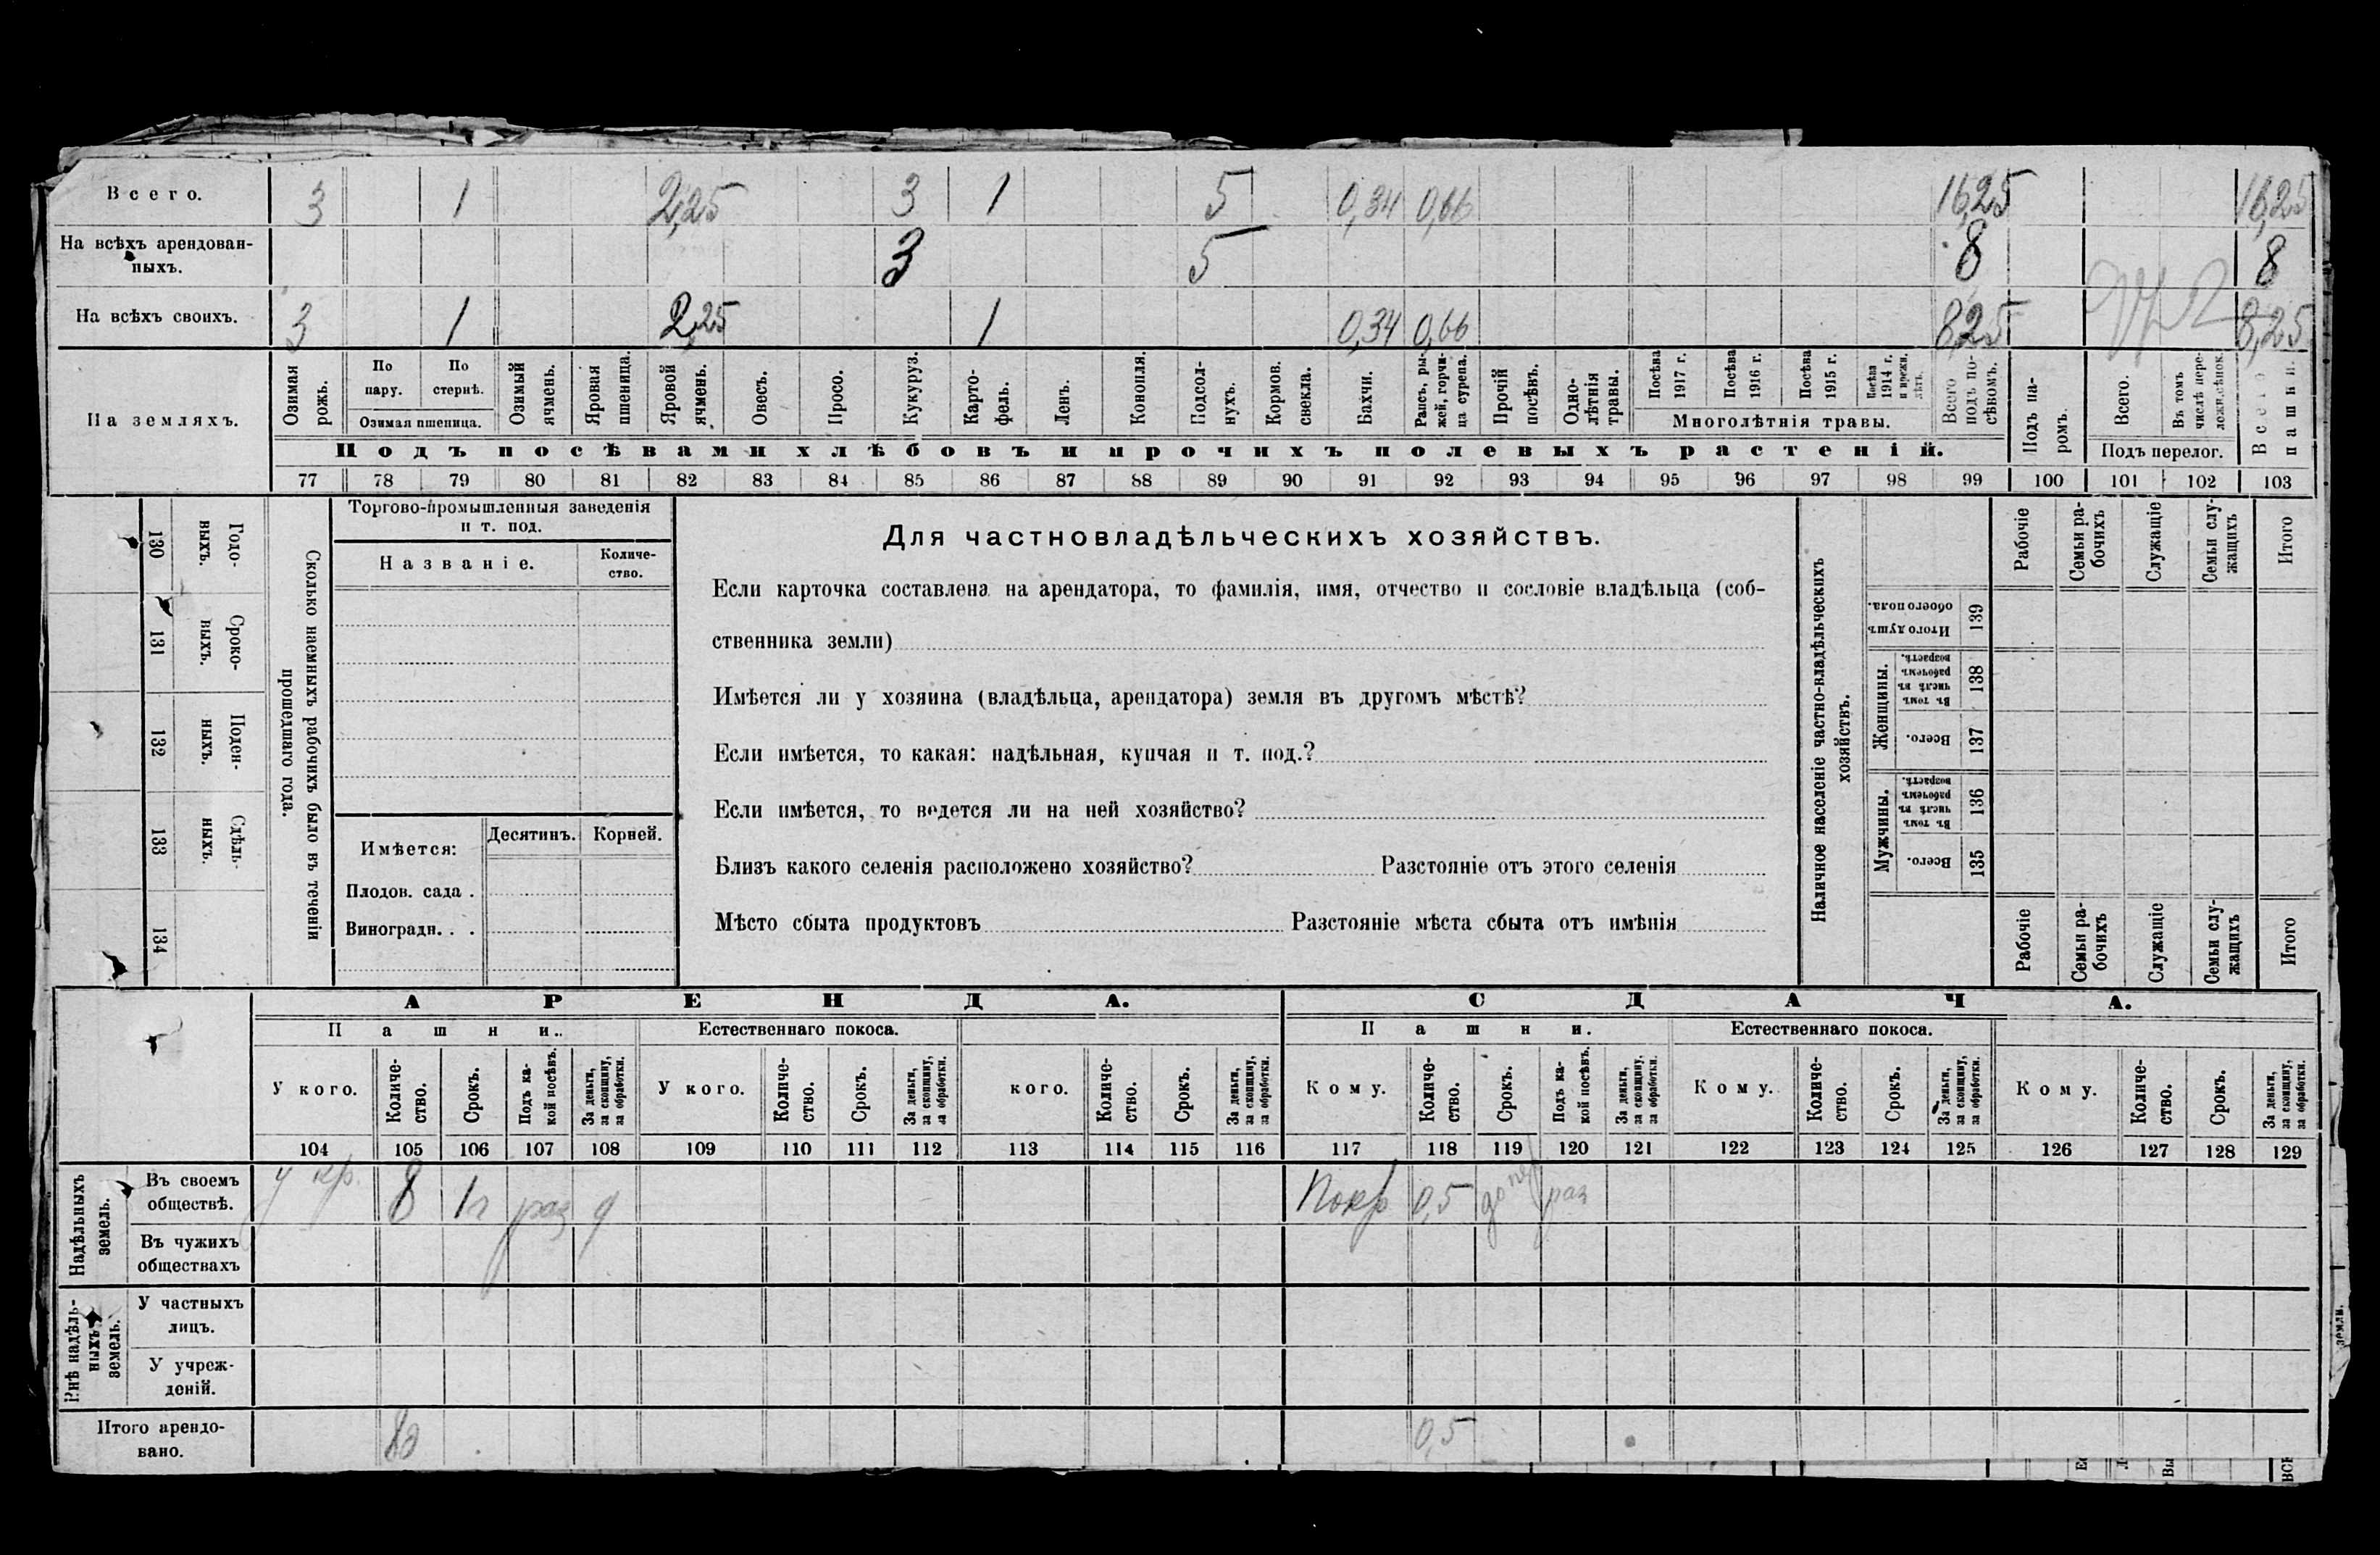 Всего. 3 1 2,25 3 1 5 0,34 0,66 16,25 16,25
На всѣхъ арендован-
ныхъ. 3 5 8 8
На всѣхъ своихъ. 3 1 2,25 1 0,34 0,66 8,25 8,25
На земляхъ.
Озимая рожь.
По пару.
По стернѣ.
Озимая пшеница.
Озимый ячмень.
Яровая пшеница.
Яровой ячмень.
Овесъ.
Просо.
Кукуруз.
Карто-
фель.
Ленъ.
Конопля.
Подсол-
нухъ.
Кормов. свекла.
Бахчи.
Рапсъ, ры-
жей, горчи-
ца сурепа.
Прочій посѣвъ.
Одно-
лѣтнія травы.
Посѣва 1917 г.
Посѣва 1916 г.
Посѣва 1915 г.
Посѣва 1914 г. и прежн. лѣтъ.
Многолѣтнія травы.
Всего подъ по-
сѣвомъ.
Подъ па-
ромъ.
Всего.
Въ томъ числѣ пере-
ложн.сѣнок.
Подъ перелог.
Всего пашни.
Подъ посѣвами хлѣбовъ и прочихъ полевыхъ растеній.
77 78 79 80 81 82 83 84 85 86 87 88 89 90 91 92 93 94 95 96 97 98 99 100 101 102 103
Годо-
выхъ. 130
Сроко-
выхъ. 131
Поден-
ныхъ. 132
Сдѣль-
ныхъ. 133
134
Сколько наемныхъ рабочихъ было въ теченіи
прошедшаго года.
Торгово-промышленныя заведенія
и т. под.
Названіе.
Количе-
ство.
Имѣется: Десятинъ. Корней.
Плодов. сада .
Виноградн. . .
Для частновладѣльческихъ хозяйствъ.
Если карточка составлена на арендатора, то фамилія, имя, отчество и сословіе владѣльца (соб-
ственника земли)
Имѣется ли у хозяина (владѣльца, арендатора) земля въ другомъ мѣстѣ?
Если имѣется, то какая: надѣльная, купчая и т. под.?
Если имѣется, то ведется ли на ней хозяйство?
Близъ какого селенія расположено хозяйство? Разстояніе отъ этого селенія
Мѣсто сбыта продуктовъ Разстояніе мѣста сбыта отъ имѣнія
Наличное населеніе частно-владѣльческихъ
хозяйствъ.
Рабочіе
Семьи ра-
бочихъ
Служащіе
Семьи слу-
жащихъ
Итого
Итого душъ обоего пола. 139
Женщины.
Въ томъ числѣ въ рабочемъ возрастѣ. 138
Всего. 137
Мужчины.
Въ томъ числѣ въ рабочемъ возрастѣ. 136
Всего. 135
Рабочіе
Семьи ра-
бочихъ
Служащіе
Семьи слу-
жащихъ
Итого
АРЕНДА. СДАЧА.
Пашни. Естественнаго покоса. Пашни. Естественнаго покоса.
У кого.
Количе-
ство.
Срокъ.
Подъ ка-
кой посѣвъ.
За деньги, за скопщину, за обработки.
У кого.
Количе-
ство.
Срокъ.
За деньги, за скопщину, за обработки.
кого.
Количе-
ство.
Срокъ.
За деньги, за скопщину, за обработки.
Кому.
Количе-
ство.
Срокъ.
Подъ ка-
кой посѣвъ.
За деньги, за скопщину, за обработки.
Кому.
Количе-
ство.
Срокъ.
За деньги, за скопщину, за обработки.
Кому.
Количе-
ство.
Срокъ.
За деньги, за скопщину, за обработки.
104 105 106 107 108 109 110 111 112 113 114 115 116 117 118 119 120 121 122 123 124 125 126 127 128 129
Надѣльныхъ
земель.
Въ своемъ
обществѣ. у кр. 8 1г раз д 0,5 раз
Въ чужихъ
обществахъ
Внѣ надѣль-
ныхъ
земель.
У частныхъ
лицъ.
У учреж-
деній.
Итого арендо-
вано. 0,5
земли.